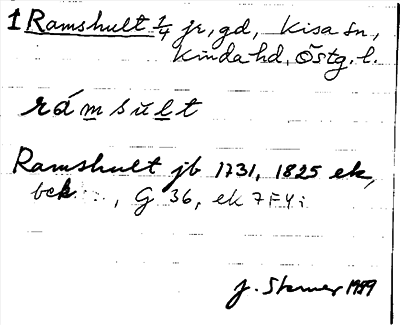 1 Ramshult 1/4 jr, gd, Kisa sn,
Kinda hd, Östg. l.
rámsult
Ramshult jb 1731, 1825 ek,
bek , G 36, ek 7F4i
J. 1959